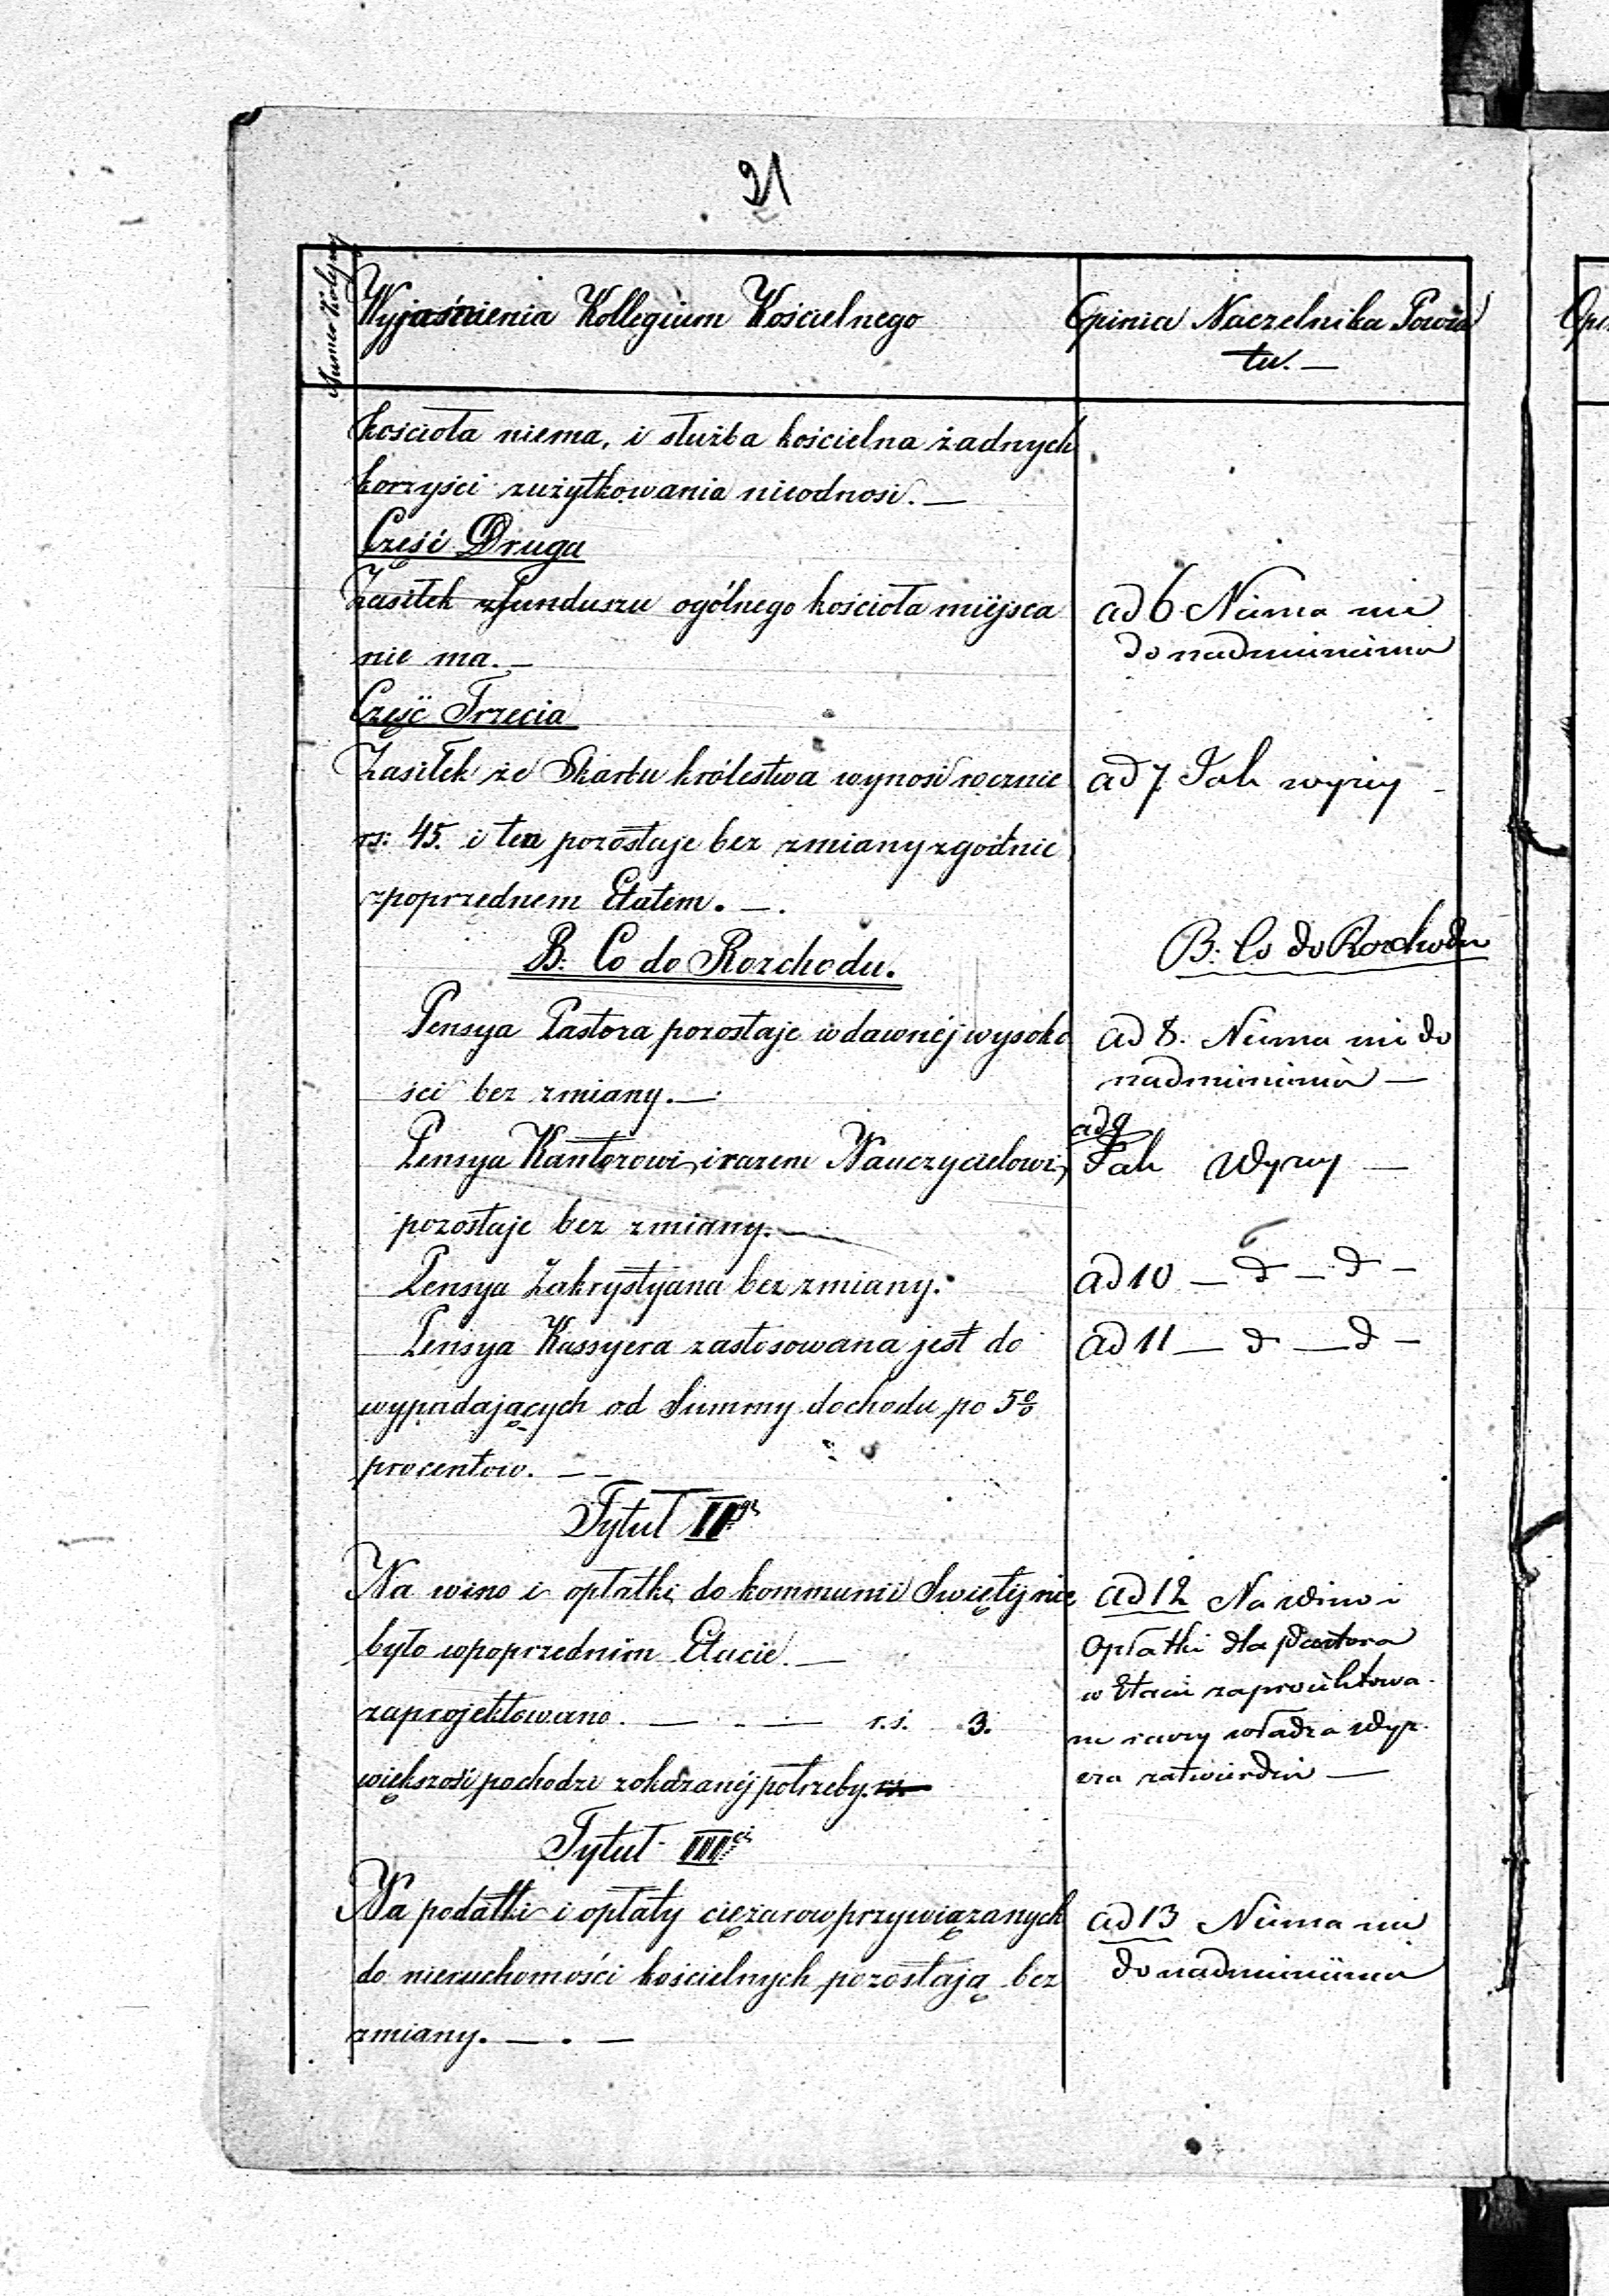 21
Numer Kolejny
Wyjaśnienia Kollegium Kościelnego
Opinia Naczelnika Powia
tu. —
kościoła niema, i służba kościelna żadnych
korzyści zużytkowania nieodnosi. —
Część Druga
Zasiłek z funduszu ogólnego kościoła miejsca
nie ma. —
ad 6 Niema nic
do nadmienienia
Część Trzecia
Zasiłek ze Skarbu królestwa wynosi rocznie
rs: 45. i ten pozostaje bez zmiany zgodnie
zpoprzednem Etatem. —.
ad 7 Jak wyżej —
B: Co do Rozchodu.
B: Co do Rozchodu
Pensya Pastora pozostaje w dawnéj wysoko
ści bez zmiany. —
ad 8. Niema nic do
nadmienienia —
Pensya Kantorowi, i razem Nauczycielowi,
pozostaje bez zmiany. —
ad 9
Jak wyżej —
Pensya Zakrystyana bez zmiany.
ad 10 — d — d —
Pensya Kassyera zastosowana jest do
wypadających od Summy dochodu po 5%
procentow. — —
ad 11 — d — d —
Tytuł IIgi
Na wino i opłatki do kommunii Swiętéj nie
było wpoprzednim Etacie. —
zaprojektowano. — . — r.s. 3.
większość pochodzi zokazanéj potrzeby.
ad 12 Na wino i
Opłatki dla Pastora
w Etacie zaprojektowa
ne raczy władza wyż
sza zatwierdzić —
Tytuł IIIci
Na podatki i opłaty ciężarow przywiązanych
do nieruchomości kościelnych pozostają bez
zmiany. — . —
ad 13 Niema nic
do nadmienienia